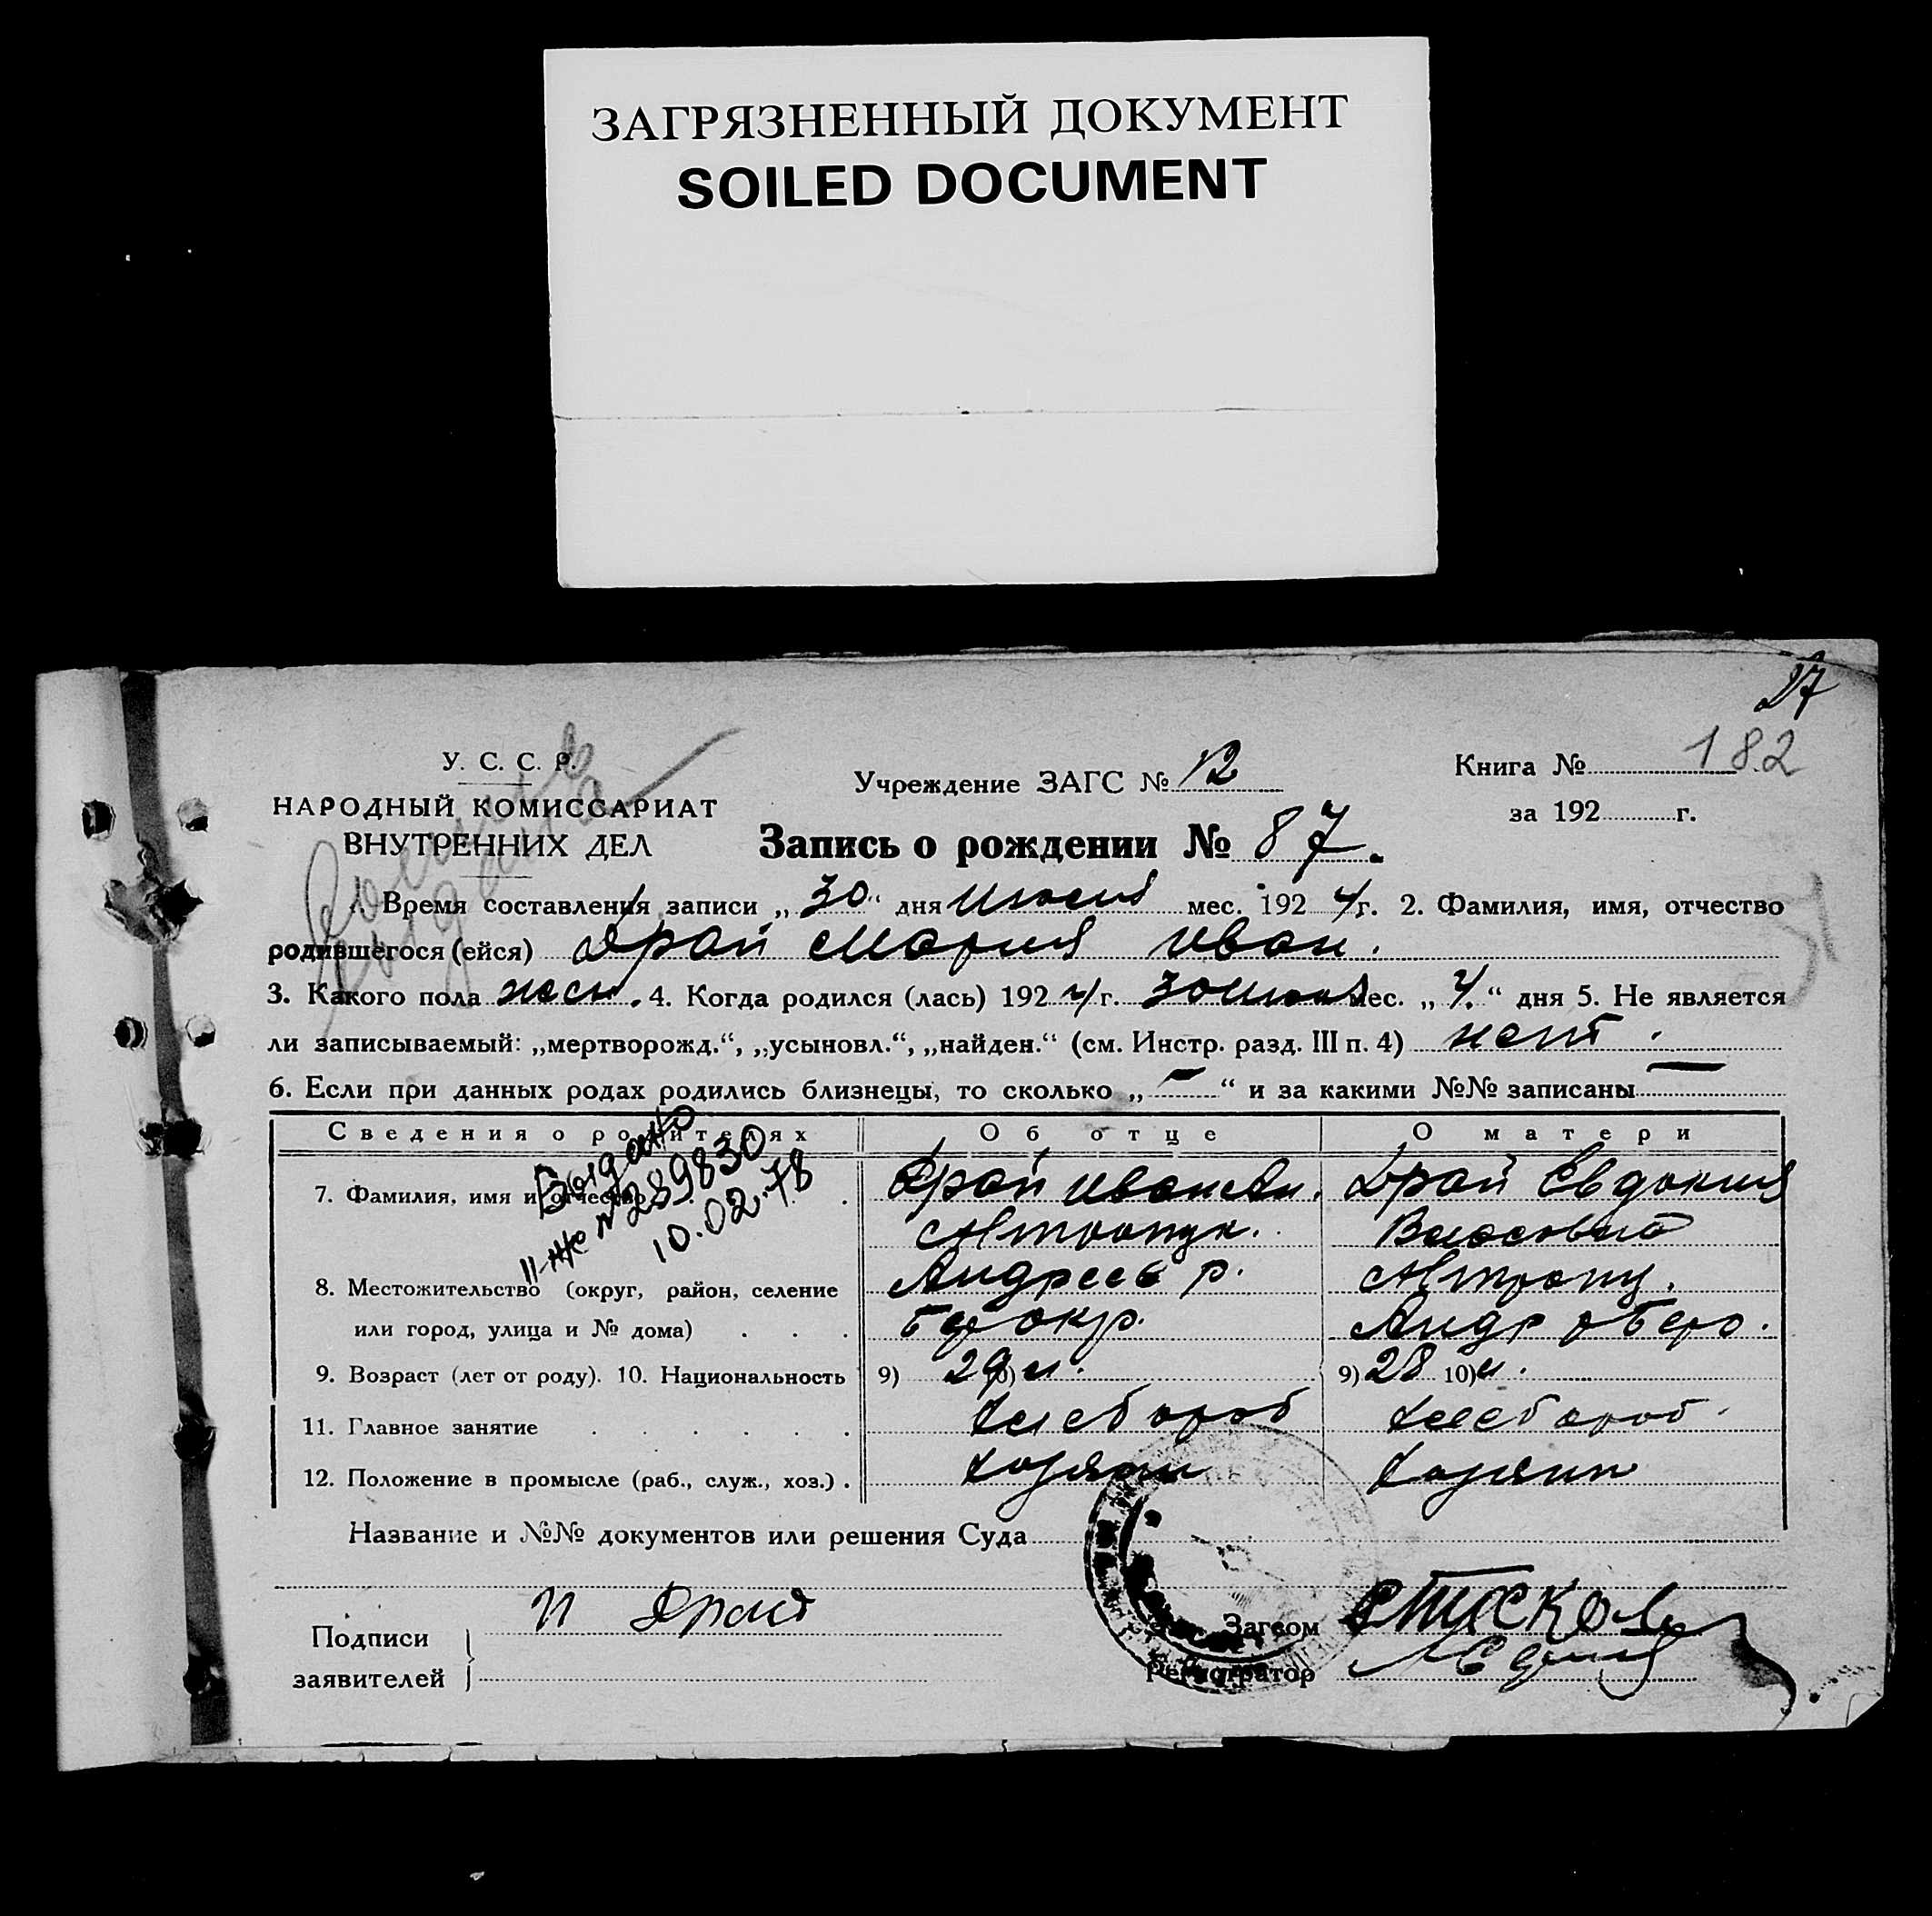 ЗАГРЯЗНЕННЫЙ ДОКУМЕНТ
SOILED DOCUMENT
27
У. С. С. Р.
НАРОДНЫЙ КОМИССАРИАТ
ВНУТРЕННИХ ДЕЛ
Учреждение ЗАГС № 12
Книга № 182
за 192 г.
Запись о рождении № 87.
1. Время составления записи „30“ дня Июня мес. 1924г. 2. Фамилия, имя, отчество
родившегося (ейся) Драй Мария Иван.
3. Какого пола жен. 4. Когда родился (лась) 1924г. 30 Июня мес. „4.“ дня 5. Не является
ли записываемый: „мертворожд.“, „усыновл.“, „найден.“ (см. Инстр. разд. III п. 4) нет.
6. Если при данных родах родились близнецы, то сколько „—“ и за какими №№ записаны —
Сведения о родителях Об отце О матери
Выдано
II-ЖС № 289830
10.02.78
7. Фамилия, имя и отчество Драй Иван Ан. Драй Евдокия
Власовна
8. Местожительство (округ, район, селение Андреев р.
или город, улица и № дома) Бер окр. Андр р Берд.
9. Возраст (лет от роду). 10. Национальность 9) 29 10) 9) 28 10)
11. Главное занятие хлебороб хлебороб.
12. Положение в промысле (раб., служ., хоз.) хозяин хозяин
Название и №№ документов или решения Суда
Подписи
заявителей
И Драй
Загсом
Регистратор